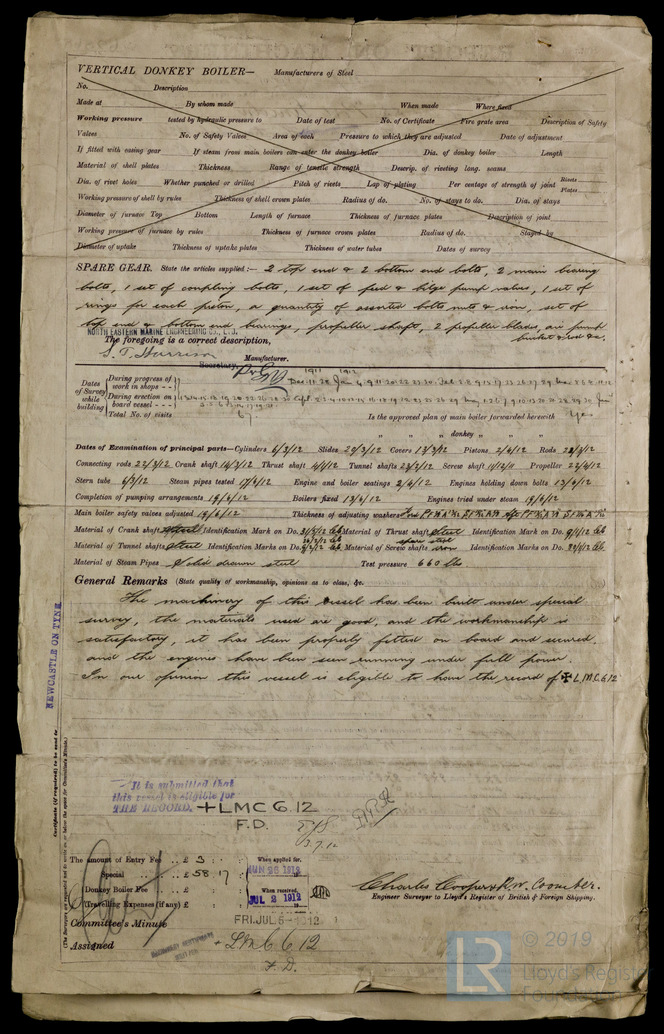 VERTICAL DONKEY BOILER— Manufacturers of Steel
No. Description
Made at By whom made When made Where fixed
Working pressure tested by hydraulic pressure to Date of test No. of Certificate Fire grate area Description of Safety
Valves No. of Safety Valves Area of each Pressure to which they are adjusted Date of adjustment
If fitted with easing gear If steam from main boilers can enter the donkey boiler Dia. of donkey boiler Length
Material of shell plates Thickness Range of tensile strength Descrip. of riveting long. seams
Dia. of rivet holes Whether punched or drilled Pitch of rivets Lap of plating Per centage of strength of joint Rivets Plates
Working pressure of shell by rules Thickness of shell crown plates Radius of do. No. of stays to do. Dia. of stays
Diameter of furnace Top Bottom Length of furnace Thickness of furnace plates Description of joint
Working pressure of furnace by rules Thickness of furnace crown plates Radius of do. Stayed by
Diameter of uptake Thickness of uptake plates Thickness of water tubes Dates of survey
SPARE GEAR. State the articles supplied:— 2 top end & 2 bottom end bolts, 2 main bearing
bolts, 1 set of coupling bolts, 1 set of feed & bilge pump valves, 1 set of
rings for each piston, a quantity of assorted bolts nuts & iron, set of
top end & bottom end bearings, propeller shaft, 2 propeller blades, air pump
bucket & rod &c.
NORTH EASTERN MARINE ENGINEERING CO., LTD.
The foregoing is a correct description,
S. T. Harrison Manufacturer.
Secretary.
Dates of Survey while building
During progress of work in shops - -
1911 1912
During erection on board vessel - - -
Total No. of visits 67
Is the approved plan of main boiler forwarded herewith Yes
" " " donkey " " "
Dates of Examination of principal parts—Cylinders 6/3/12 Slides 29/3/12 Covers 13/3/12 Pistons 2/4/12 Rods
Connecting rods 22/3/12 Crank shaft 14/3/12 Thrust shaft Tunnel shafts 23/2/12 Screw shaft Propeller 22/4/12
Stern tube 6/3/12 Steam pipes tested 17/6/12 Engine and boiler seatings 2/4/12 Engines holding down bolts 13/6/12
Completion of pumping arrangements 19/6/12 Boilers fixed 13/6/12 Engines tried under steam 19/6/12
Main boiler safety valves adjusted 19/6/12 Thickness of adjusting washers
Material of Crank shaft Steel Identification Mark on Do. Material of Thrust shaft Steel Identification Mark on Do.
Material of Tunnel shafts Steel Identification Marks on Do. Material of Screw shafts iron spare steel Identification Marks on Do.
Material of Steam Pipes Solid drawn steel Test pressure 660 lbs
General Remarks (State quality of workmanship, opinions as to class, &c.
The machinery of this vessel has been built under special
survey, the materials used are good, and the workmanship is
satisfactory, it has been properly fitted on board and secured.
and the engines have been seen running under full power.
In our opinion this vessel is eligible to have the record of ✠ L.M.C. 6.12
NEWCASTLE ON TYNE
Certificate (if required) to be sent to
(The Surveyors are requested not to write on or below the space for Committee's Minute.)
It is submitted that
this vessel is eligible for
THE RECORD. + LMC 6.12
F.D.
The amount of Entry Fee .. £ 3 : : When applied for,
Special .. £ 58 : 17 : JUN 26 1912
Donkey Boiler Fee .. £ : : When received,
Travelling Expenses (if any) £ : : JUL 2 1912
Charles Cooper & R.W. Coomber.
Engineer Surveyor to Lloyd's Register of British & Foreign Shipping.
Committee's Minute FRI. JUL. 5-1912
Assigned + LMC 6 12
F.D.
LR
© 2019
Lloyd's Register
Foundation